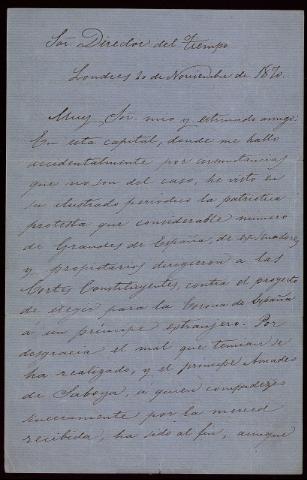 Sor Director del Tiempo
Londres 20 de Noviembre de 1870.
Muy Sor. mio y estimado amigo:
En esta capital, donde me hallo
accidentalmente por circunstancias
que no son del caso, he visto en
su ilustrado periodico la patriotica
protesta que considerable numero
de Grandes de España, de exSenadores
y propietarios dirigieron a las
Córtes Constituyentes, contra el proyecto
de elegir para la Corona de España
á un príncipe extranjero. Por
desgracia el mal que temian se
ha realizado, y el príncipe Amadeo
de Saboya, a quien compadezco
sinceramente por la merced
recibida, ha sido al fin, aunque